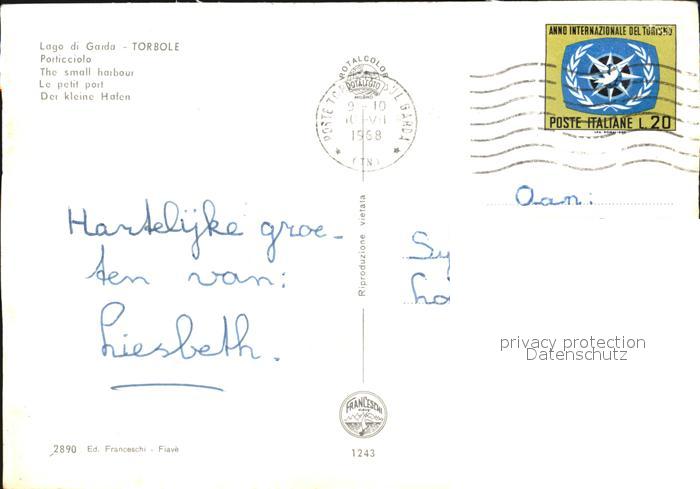 Lago di Garda - TORBOLE
Porticciolo
The small harbour
Le petit port
Der kleine Hafen
ROTALCOLOR
ROTALFOTO
MILANO
9 - 10
1968
(TN)
ANNO INTERNAZIONALE DEL TURISMO
POSTE ITALIANE L. 20
Aan:
Hartelijke groe-
ten van:
Liesbeth.
Riproduzione vietata
privacy protection
Datenschutz
FRANCESCHI
2890 Ed. Franceschi - Fiavè
1243